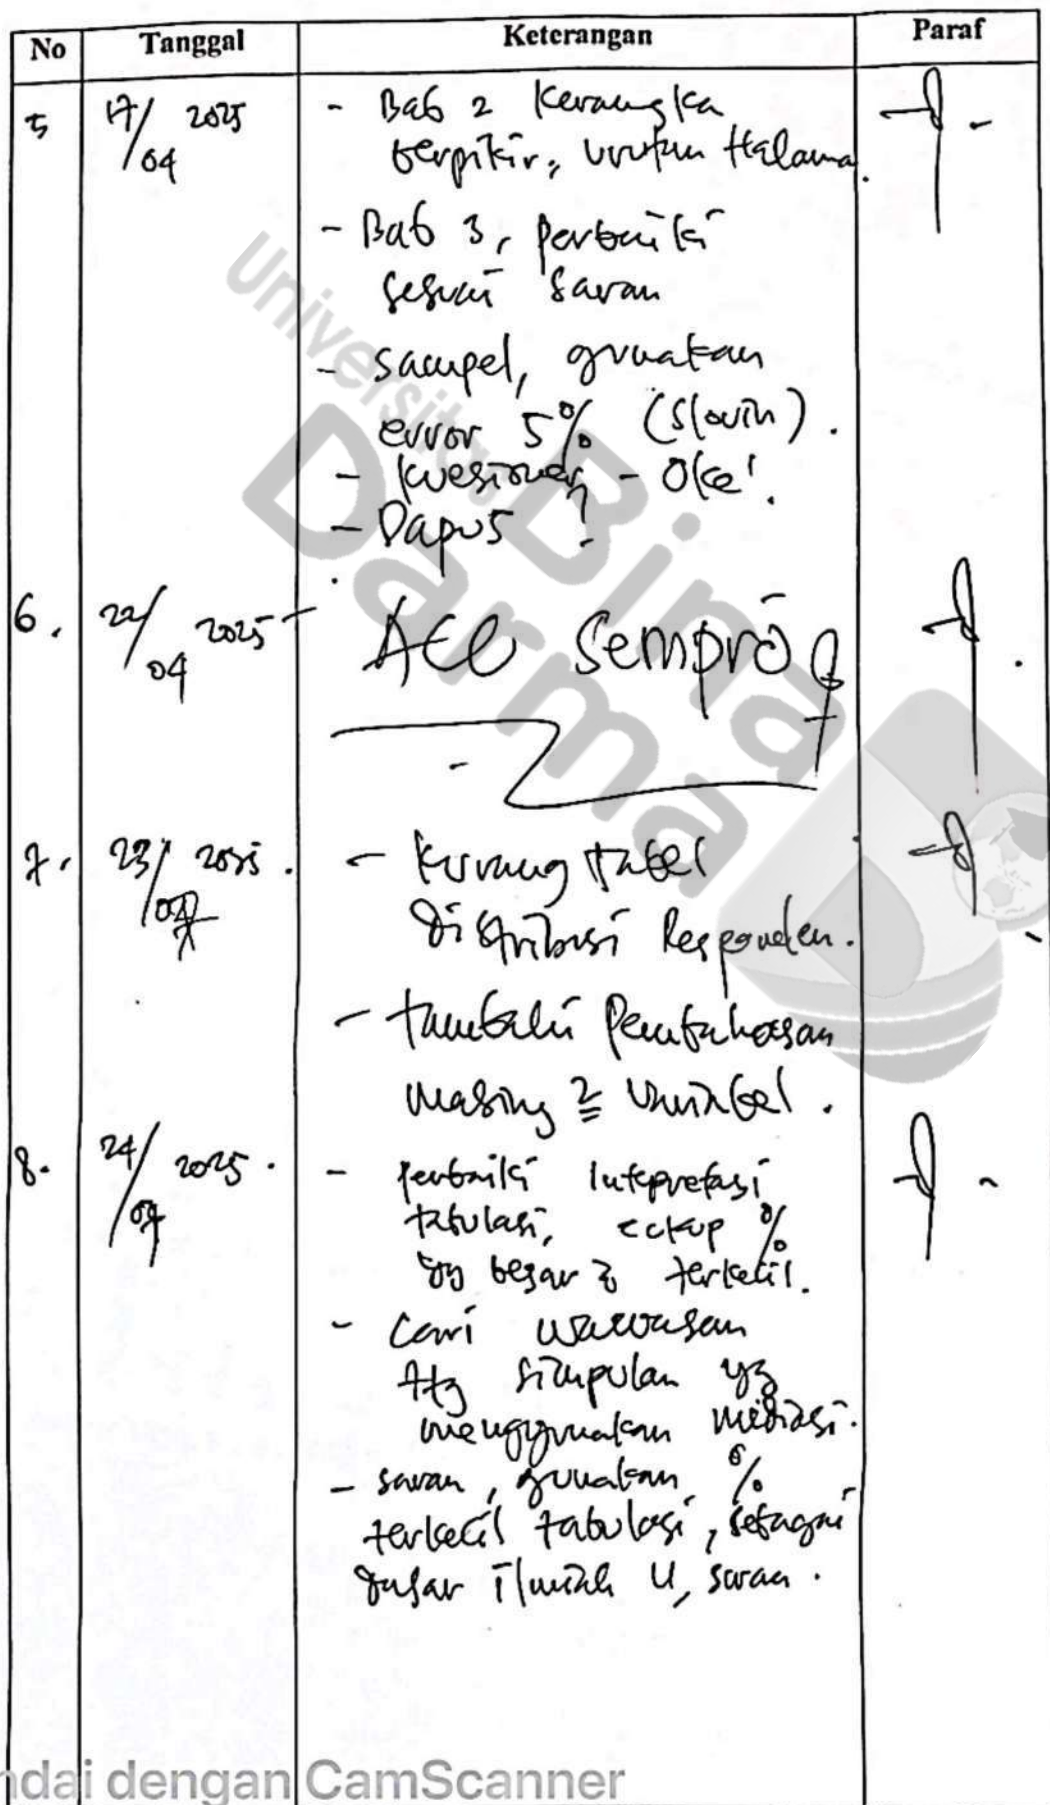 No Tanggal Keterangan Paraf
5 17/04 2025 - Bab 2 Kerangka
berpikir, urutan Halaman
- Bab 3, perbaiki
sesuai saran
- sampel, gunakan
error 5% (Slovin).
- kuesioner - Oke!
- Dapus ?
6. 22/04 2025 ACC Sempro
7. 23/07 2025. - Kurang tabel
distribusi Responden.
- tambahi Pembahasan
masing 2 variabel.
8. 24/07 2025. - perbaiki Intepretasi
tabulasi, cukup %
yg besar & terkecil.
- Cari wawasan
ttg simpulan yg
menggunakan mediasi.
- saran, gunakan %
terkecil tabulasi, sebagai
dasar ilmiah u, saran.
Universitas
Bina
Darma
ndai dengan CamScanner